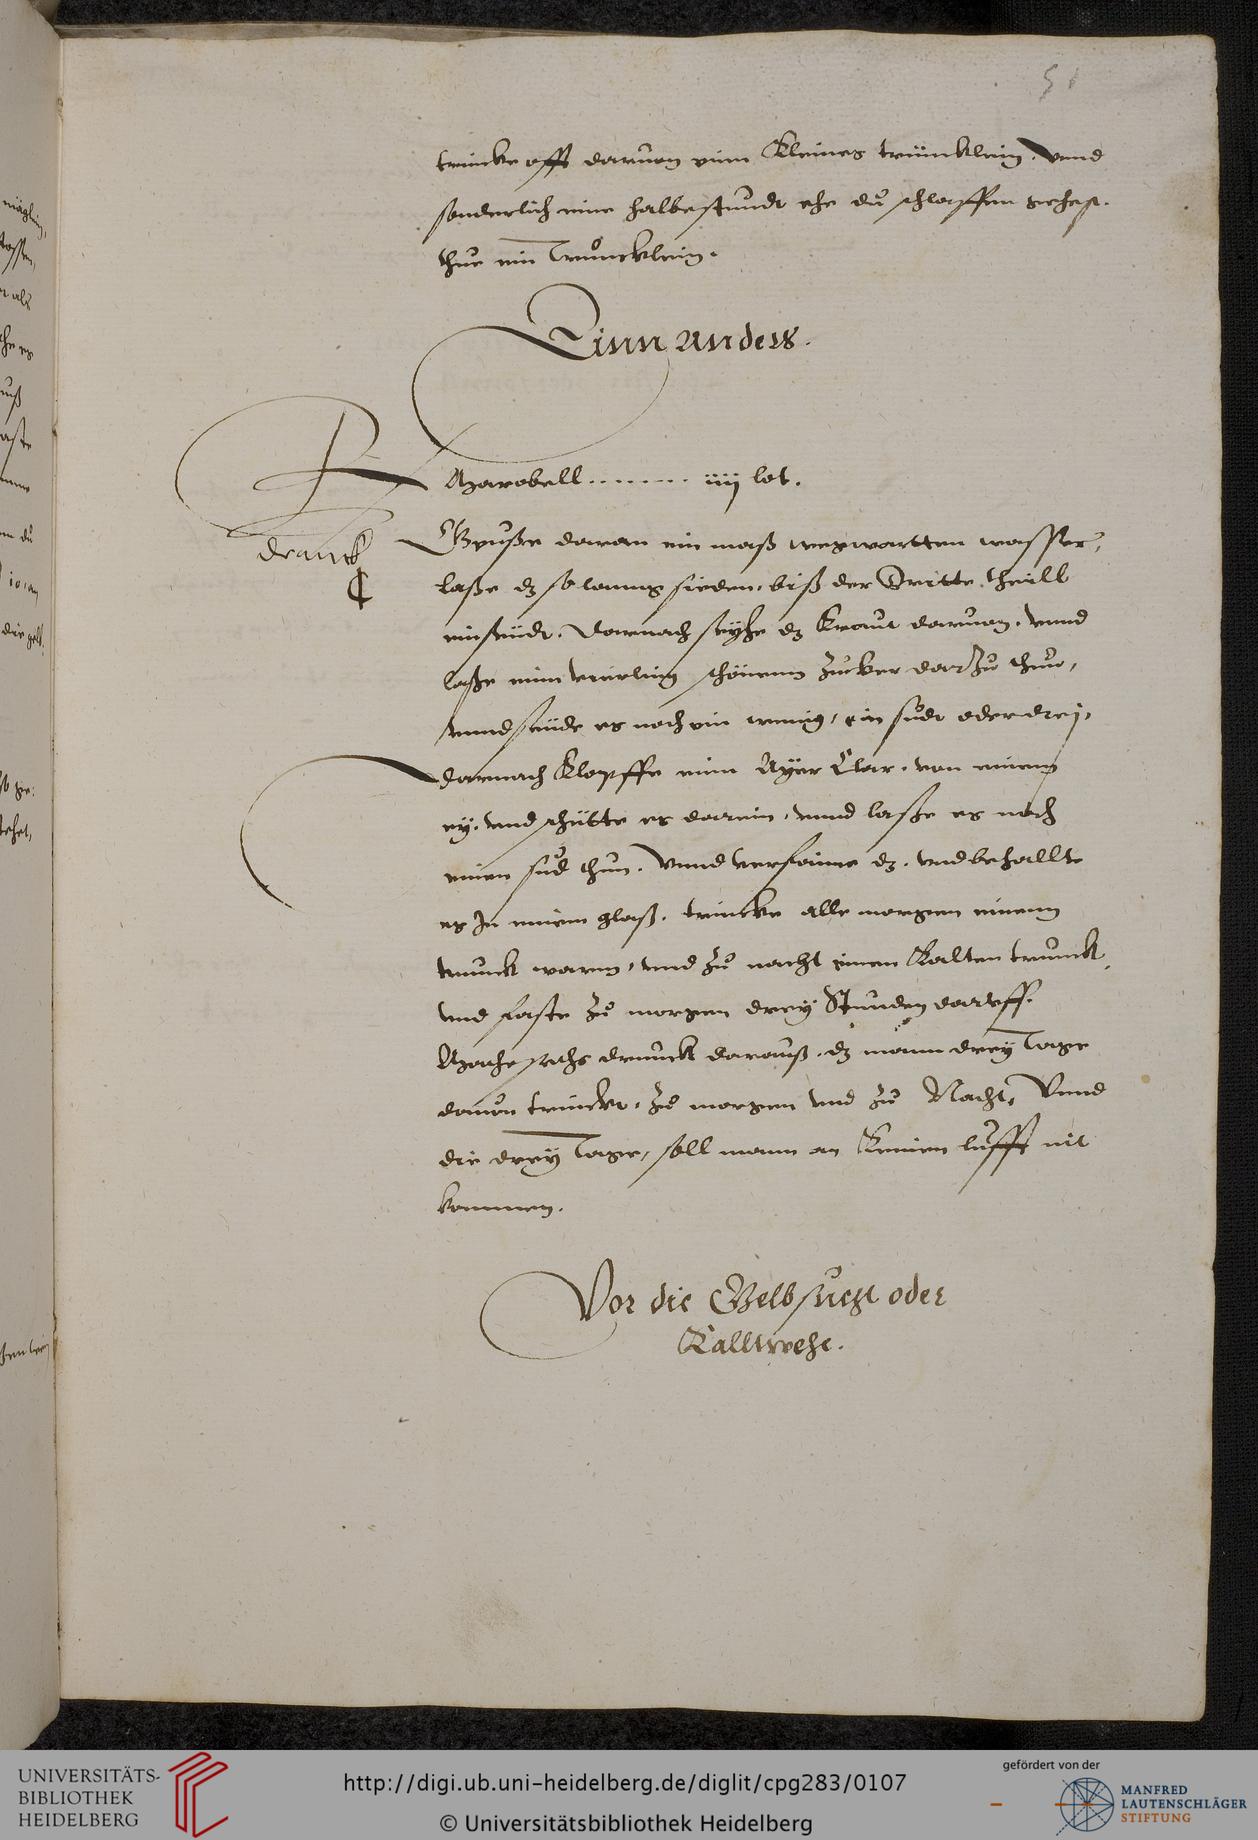 51
trincke offt daruon einn Kleines trüncklein. Vnnd
sonderlich eine halbe stundt ehe du schlaffen gehest.
thue ein Trůncklein.
Einn anders.
Marobell......... iiij lot.
dranck
Geuße daran ein maß wegwartten wasser,
laße dz so lanng sieden, biß der Dritte theill
einseudt. Darnach seyhe dz Kraut daruon, vnnd
laße einn vierling schönenn Zucker dar Zu thun,
vnnd seude es noch ein wenig, ein sudt oder drej,
darnach Klopffe einn Ayer Clar, von einem
ey, vnd schütte es darein, vnnd laße es noch
einen sud thun. Vnnd verfaime dz, vnd behallte
es In einem glaß, trincke alle morgen einenn
trunck warm, vnd zu nacht einen Kalten trunck,
vnd faste zu morgen drey Stunden darvff.
Mache sechs drunck darauß, dz mann drey Tage
dauon trincke, zu morgen vnd zu Nacht, Vnnd
die drey Tage, soll mann an Keinen lufft nit
kommen.
Vor die Gelbsucht oder
Kalltwehe.
UNIVERSITÄTS-
BIBLIOTHEK
HEIDELBERG
http://digi.ub.uni-heidelberg.de/diglit/cpg283/0107
© Universitätsbibliothek Heidelberg
gefördert von der
MANFRED
LAUTENSCHLÄGER
STIFTUNG